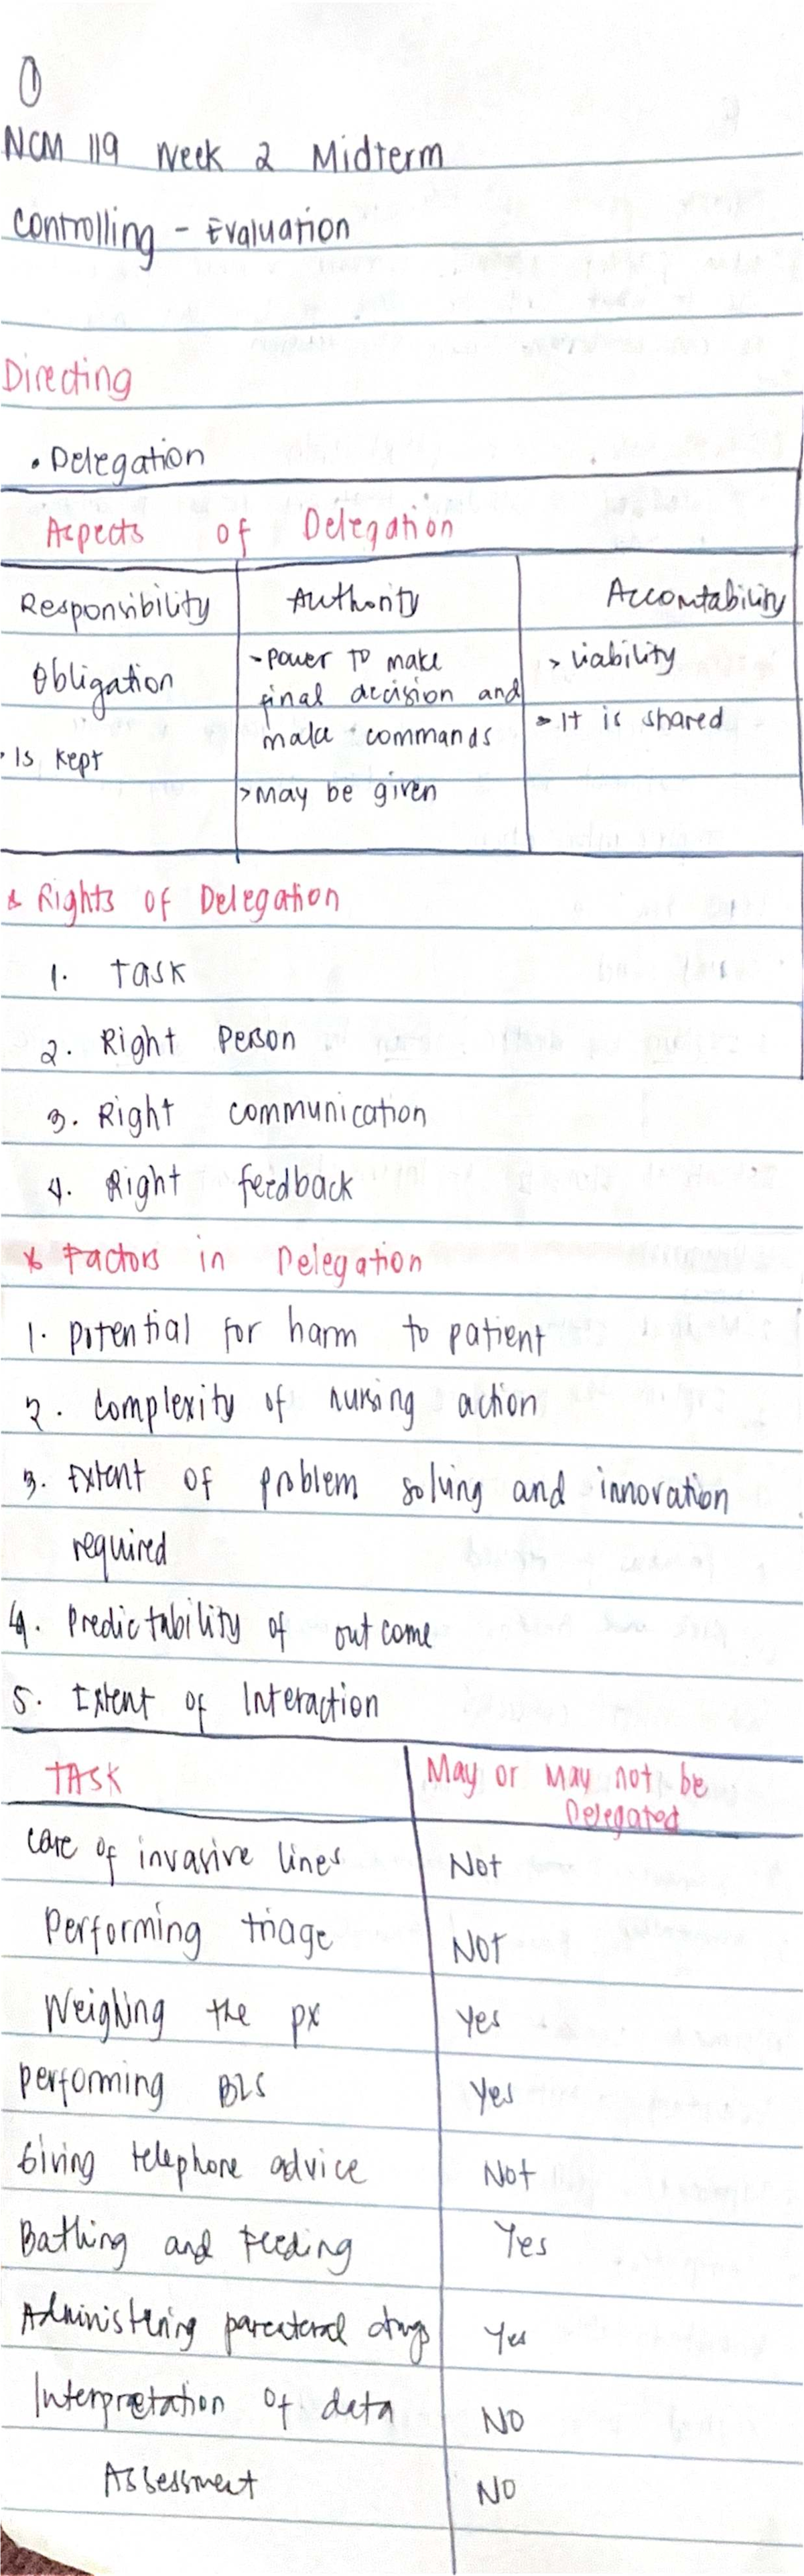 1
NCM 119 Week 2 Midterm
Controlling - Evaluation
Directing
• Delegation
Aspects of Delegation
Responsibility Authority Accountability
Obligation
• Is kept
- power to make
final decision and
make commands
> May be given
> liability
> It is shared
Rights of Delegation
1. Task
2. Right Person
3. Right communication
4. Right feedback
* Factors in Delegation
1. potential for harm to patient
2. complexity of nursing action
3. Extent of problem solving and innovation
required
4. Predictability of outcome
5. Extent of Interaction
TASK May or May not be
Delegated
Care of invasive lines Not
Performing triage Not
Weighing the px Yes
performing BLS Yes
Giving telephone advice Not
Bathing and Feeding Yes
Administering parenteral drugs Yes
Interpretation of data NO
Assessment NO